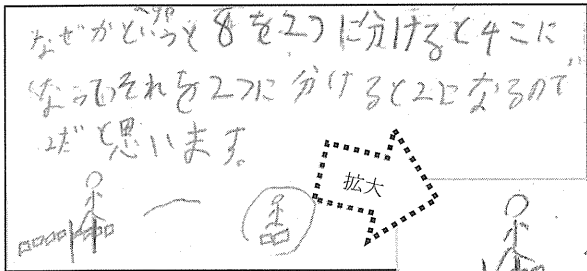 なぜかというと8を2つに分けると4こに
なってそれを2つに分けると2になるので
2だと思います。
拡大